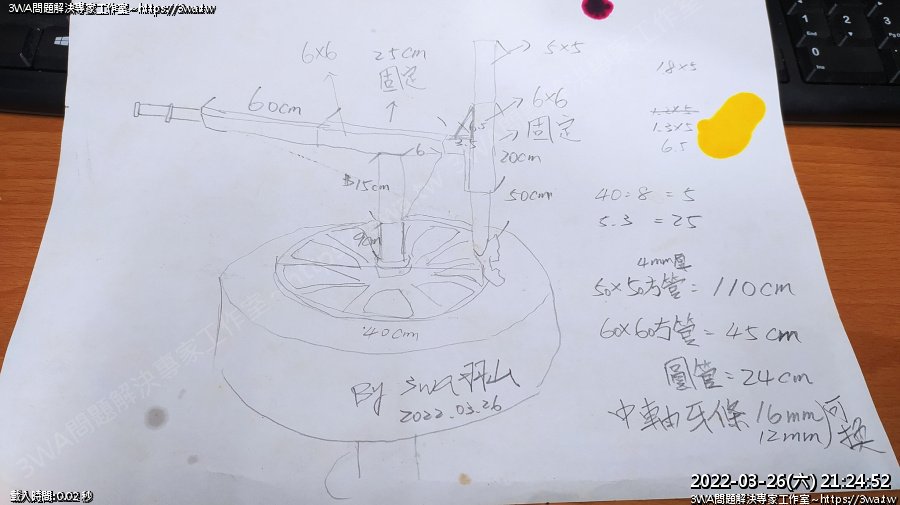 3WA問題解決專家工作室~https://3wa.tw
3WA問題解決專家工作室~https://3wa.tw
6x6
25cm
固定
5x5
60cm
6x6
固定
6
20cm
15cm
50cm
9cm
40cm
By 3WA羽山
2022.03.26
18x5
1.3x5
6.5
40÷8 = 5
5.3 = 25
4mm厚
50x50方管= 110cm
60x60方管= 45cm
圓管= 24cm
中軸牙條 16mm
12mm
可換
2022-03-26(六) 21:24:52
載入時間: 0.02 秒
3WA問題解決專家工作室~https://3wa.tw